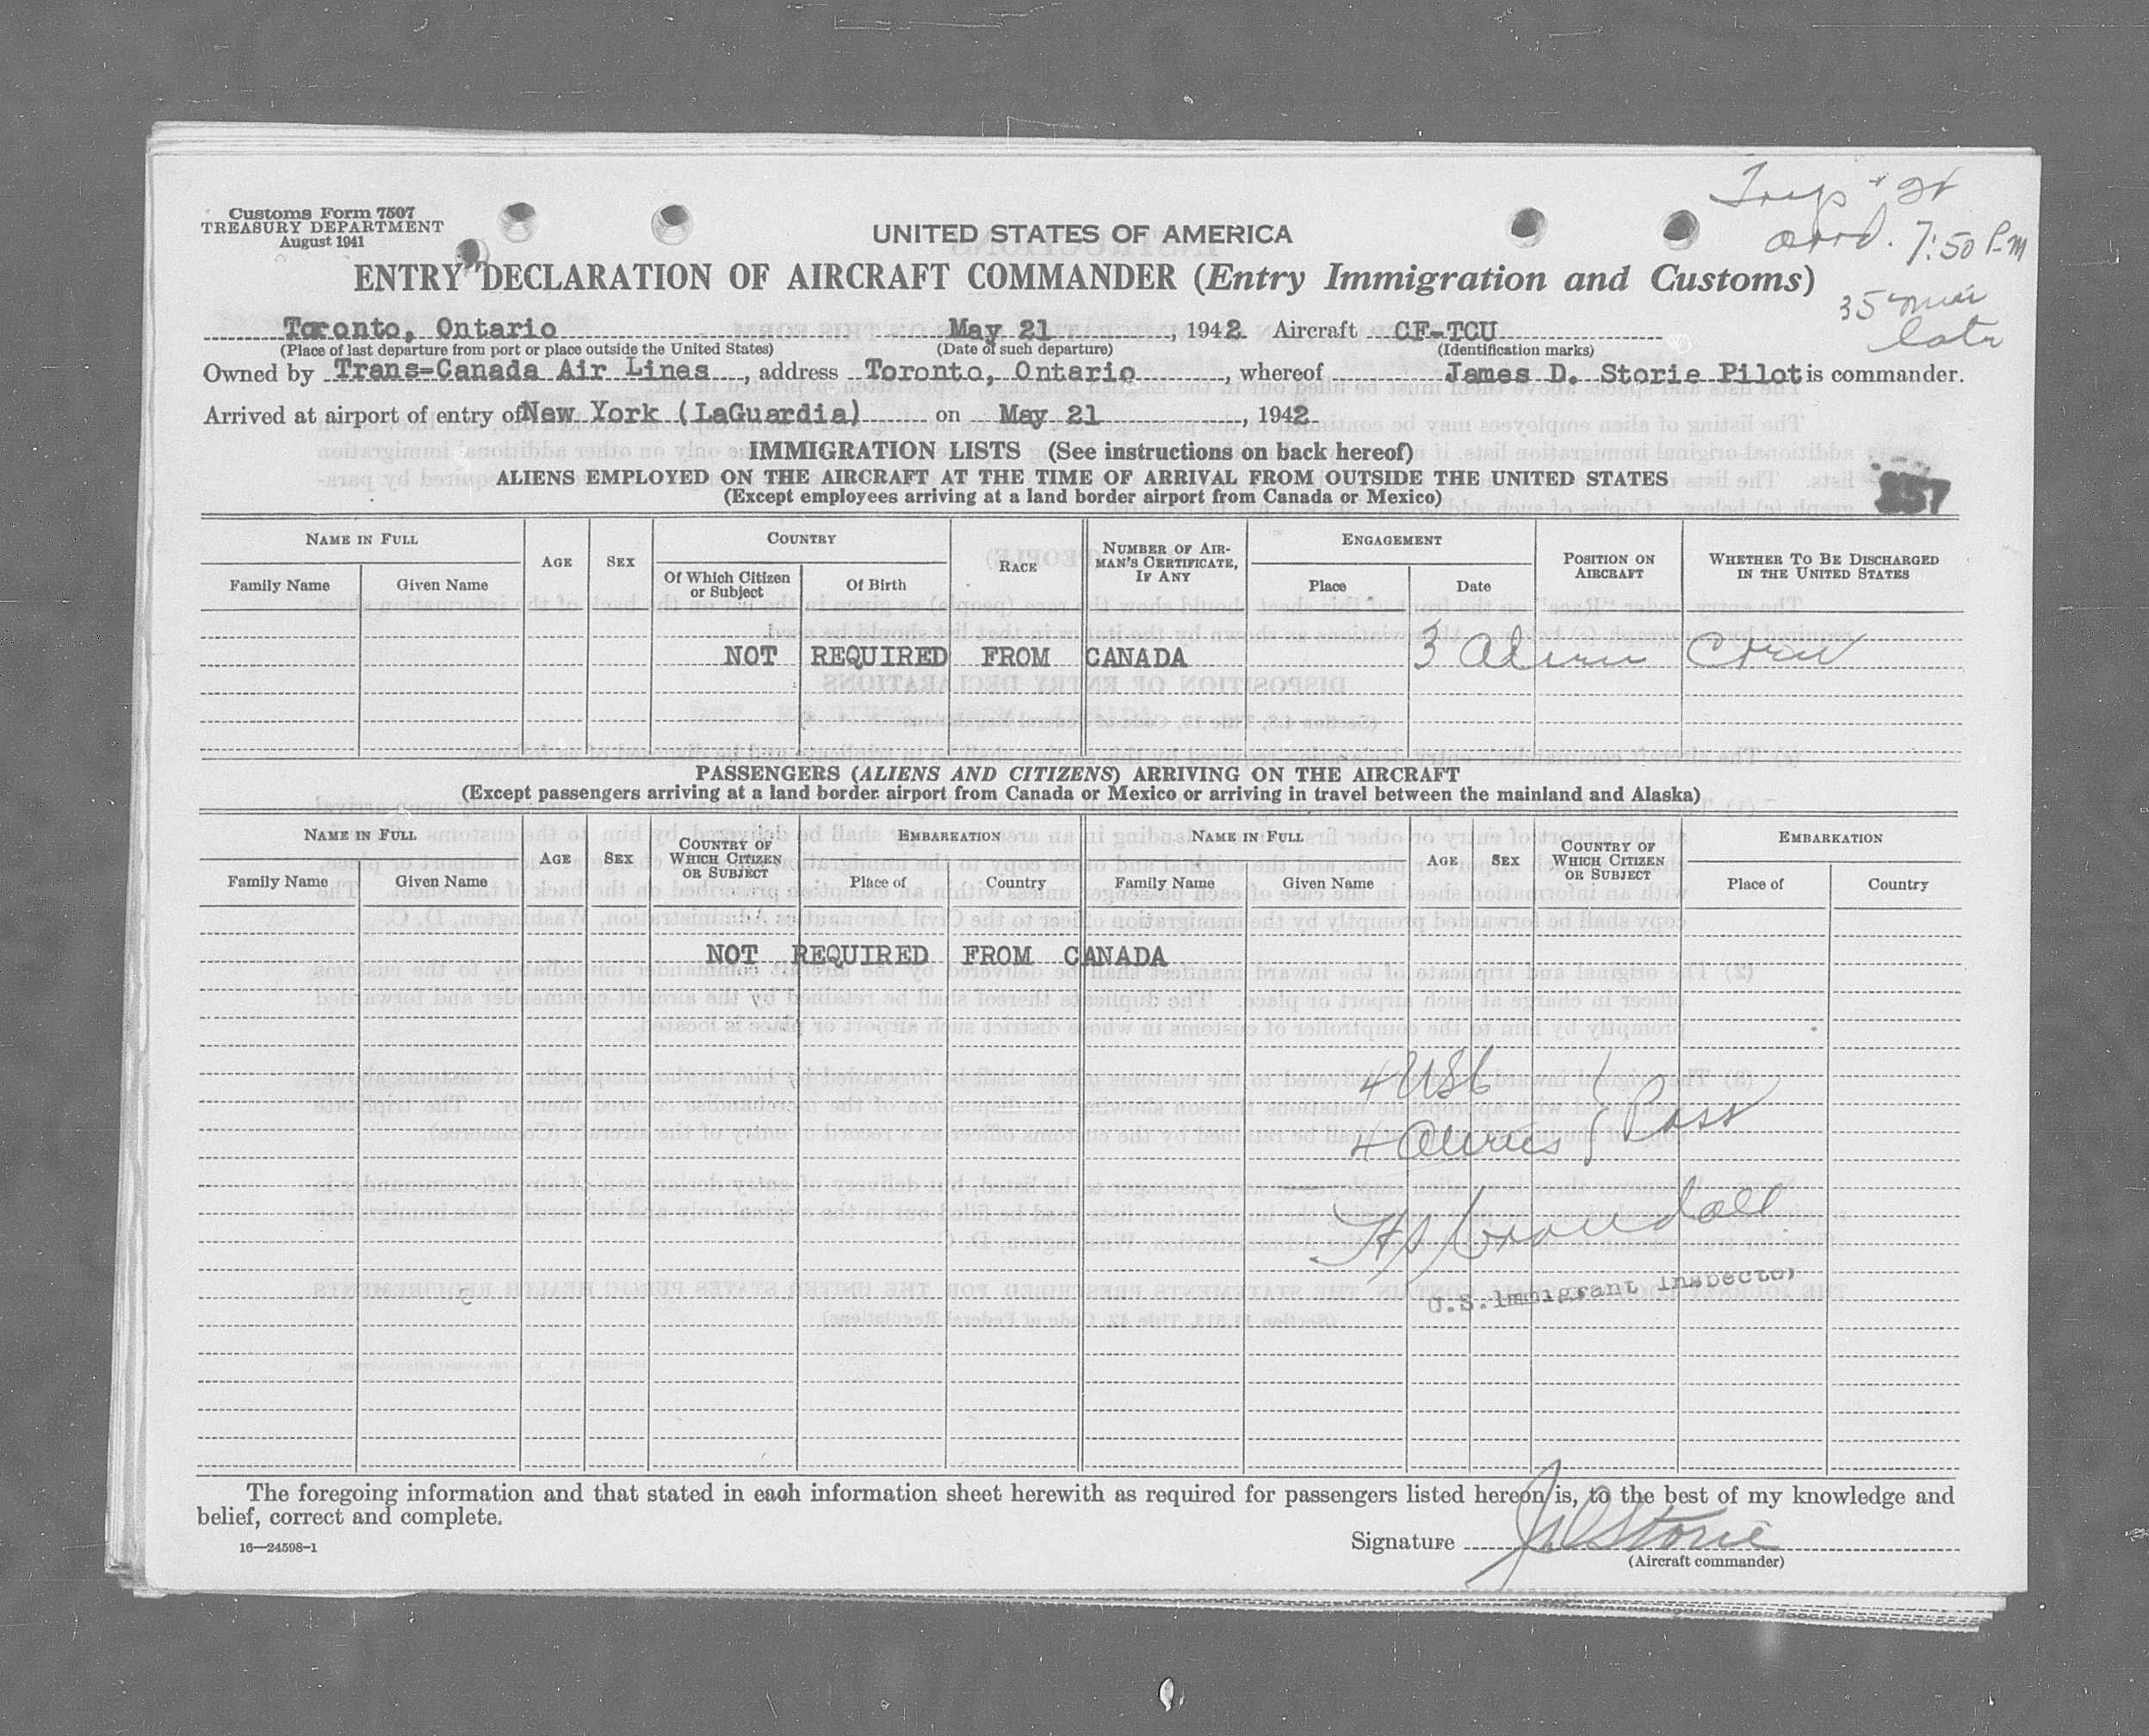 Customs Form 7507
TREASURY DEPARTMENT
August 1941
UNITED STATES OF AMERICA
ENTRY DECLARATION OF AIRCRAFT COMMANDER (Entry Immigration and Customs)
arrd. 7:50 P.M
35 min
late
Toronto, Ontario May 21, 1942 Aircraft CF-TCU
(Place of last departure from port or place outside the United States) (Date of such departure) (Identification marks)
Owned by Trans-Canada Air Lines, address Toronto, Ontario, whereof James D. Storie Pilot is commander.
Arrived at airport of entry of New York (LaGuardia) on May 21, 1942
IMMIGRATION LISTS (See instructions on back hereof)
ALIENS EMPLOYED ON THE AIRCRAFT AT THE TIME OF ARRIVAL FROM OUTSIDE THE UNITED STATES
(Except employees arriving at a land border airport from Canada or Mexico)
357
NAME IN FULL AGE SEX COUNTRY RACE NUMBER OF AIRMAN'S CERTIFICATE, IF ANY ENGAGEMENT POSITION ON AIRCRAFT WHETHER TO BE DISCHARGED IN THE UNITED STATES
Family Name Given Name Of Which Citizen or Subject Of Birth Place Date
NOT REQUIRED FROM CANADA 3 Alien Crew
PASSENGERS (ALIENS AND CITIZENS) ARRIVING ON THE AIRCRAFT
(Except passengers arriving at a land border airport from Canada or Mexico or arriving in travel between the mainland and Alaska)
NAME IN FULL AGE SEX COUNTRY OF WHICH CITIZEN OR SUBJECT EMBARKATION NAME IN FULL AGE SEX COUNTRY OF WHICH CITIZEN OR SUBJECT EMBARKATION
Family Name Given Name Place of Country Family Name Given Name Place of Country
NOT REQUIRED FROM CANADA
4 USC
4 Aliens } Pass
Crandall
U.S. Immigrant Inspector
The foregoing information and that stated in each information sheet herewith as required for passengers listed hereon is, to the best of my knowledge and
belief, correct and complete.
Signature JD Storie
(Aircraft commander)
16—24598-1